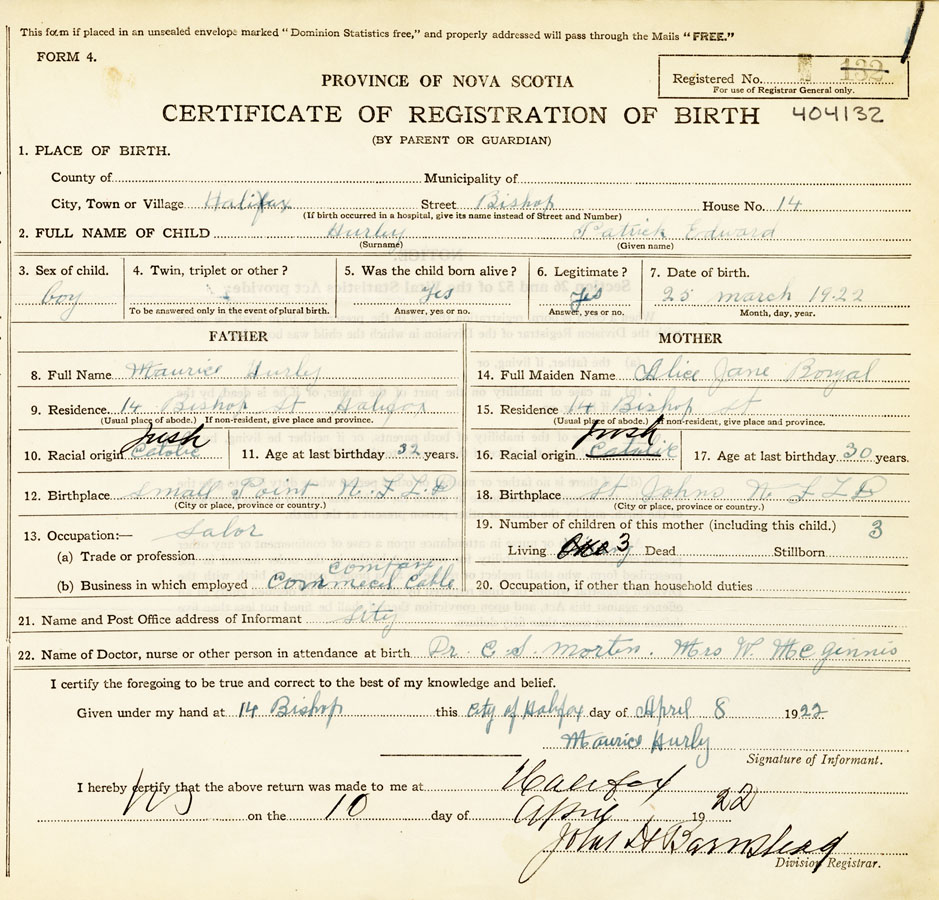 This form if placed in an unsealed envelope marked "Dominion Statistics free," and properly addressed will pass through the Mails "FREE."
FORM 4.
PROVINCE OF NOVA SCOTIA
Registered No. 132
For use of Registrar General only.
CERTIFICATE OF REGISTRATION OF BIRTH 404132
(BY PARENT OR GUARDIAN)
1. PLACE OF BIRTH.
County of Municipality of
City, Town or Village Halifax Street Bishop House No. 14
(If birth occurred in a hospital, give its name instead of Street and Number)
2. FULL NAME OF CHILD Hurley Patrick Edward
(Surname) (Given name)
3. Sex of child. 4. Twin, triplet or other? 5. Was the child born alive? 6. Legitimate? 7. Date of birth.
boy Yes Yes 25 march 1922
To be answered only in the event of plural birth. Answer, yes or no. Answer, yes or no. Month, day, year.
FATHER MOTHER
8. Full Name Maurice Hurly 14. Full Maiden Name Alice Jane
9. Residence 14 Bishop St Halifax 15. Residence 14 Bishop St
(Usual place of abode.) If non-resident, give place and province. (Usual place of abode.) If non-resident, give place and province.
Irish Irish
10. Racial origin Catolic 11. Age at last birthday 32 years. 16. Racial origin Catolic 17. Age at last birthday 30 years.
12. Birthplace Small Point N.F.L.D 18. Birthplace St Johns N F L D
(City or place, province or country.) (City or place, province or country.)
13. Occupation:— Salor 19. Number of children of this mother (including this child.) 3
(a) Trade or profession Living 3 Dead Stillborn
company
(b) Business in which employed Commecal Cable 20. Occupation, if other than household duties
21. Name and Post Office address of Informant Sity
22. Name of Doctor, nurse or other person in attendance at birth Dr. C. S. Morten. Mrs W. McGinnis
I certify the foregoing to be true and correct to the best of my knowledge and belief.
Given under my hand at 14 Bishop this City of Halifax day of April 8 1922
Maurice Hurly
Signature of Informant.
I hereby certify that the above return was made to me at Halifax
on the 10 day of April 1922
John H Barnstead
Division Registrar.